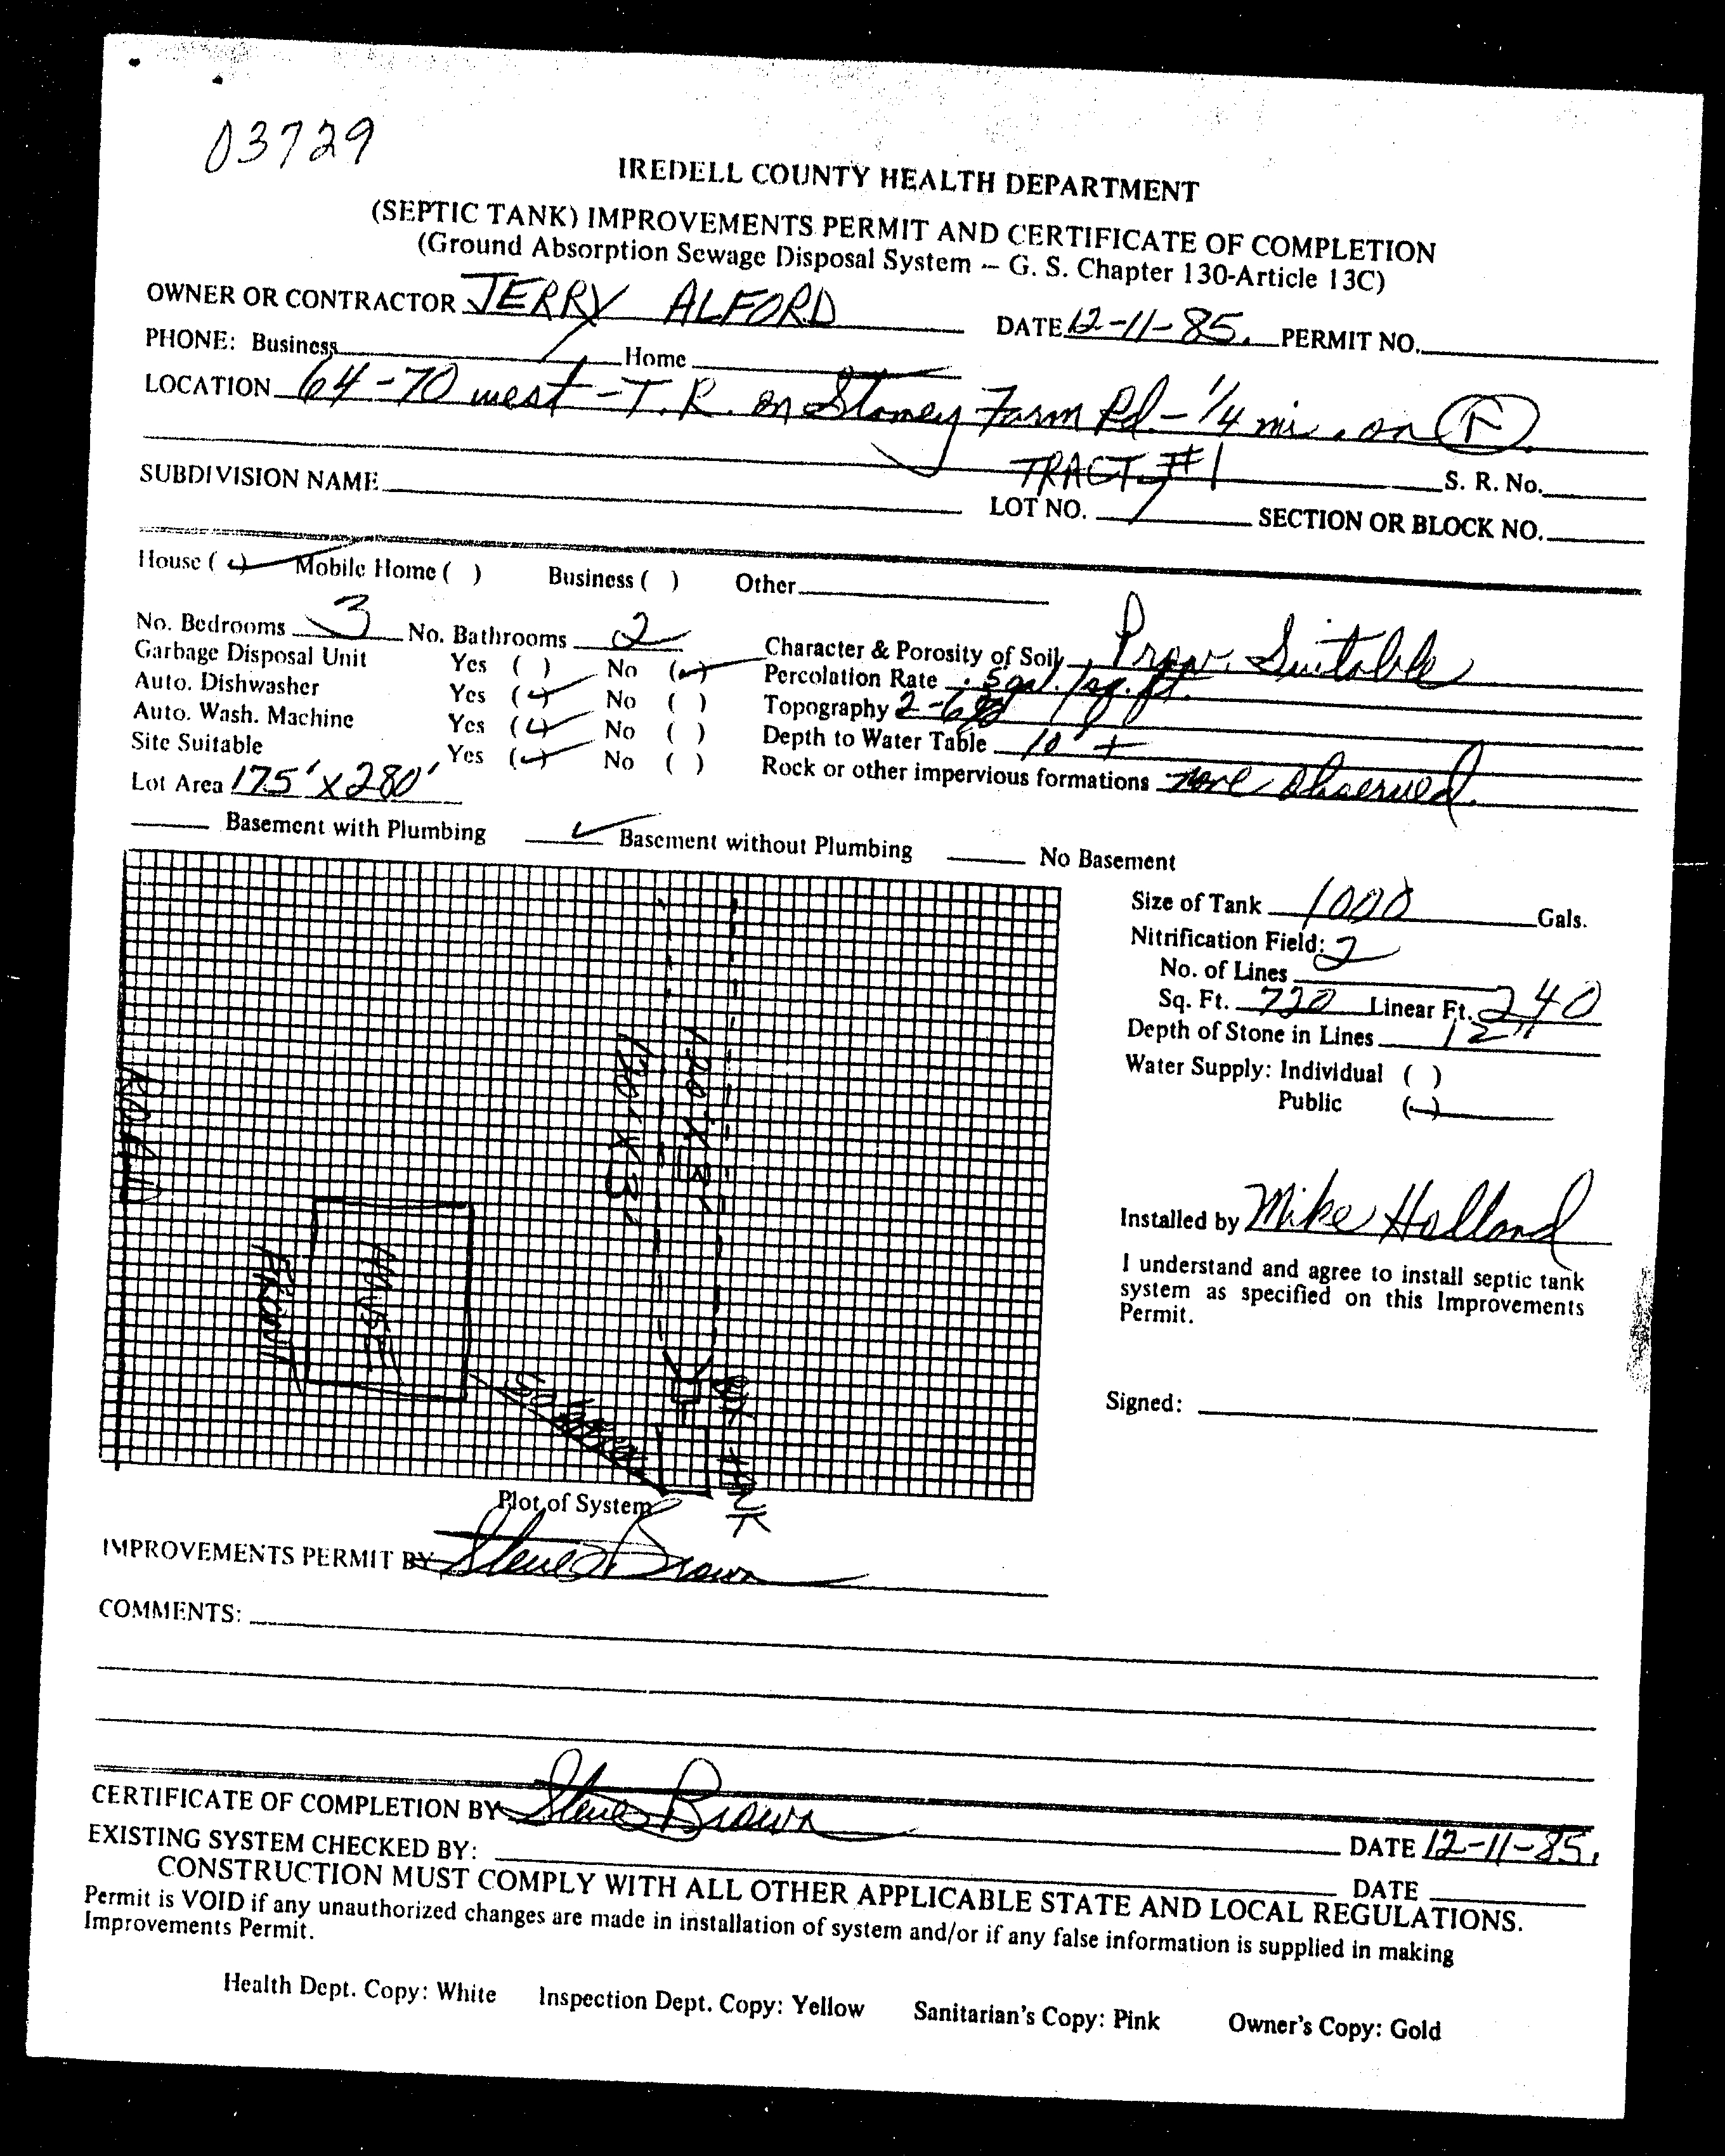 03729
IREDELL COUNTY HEALTH DEPARTMENT
(SEPTIC TANK) IMPROVEMENTS PERMIT AND CERTIFICATE OF COMPLETION
(Ground Absorption Sewage Disposal System -- G. S. Chapter 130-Article 13C)
OWNER OR CONTRACTOR JERRY ALFORD DATE 12-11-85. PERMIT NO.
PHONE: Business Home
LOCATION 64-70 west - T.R. on Stoney Farm Rd - 1/4 mi. on R.
TRACT #1 S. R. No.
SUBDIVISION NAME LOT NO. SECTION OR BLOCK NO.
House (✓) Mobile Home ( ) Business ( ) Other
No. Bedrooms 3 No. Bathrooms 2 Character & Porosity of Soil Prov. Suitable
Garbage Disposal Unit Yes ( ) No (✓) Percolation Rate .5 gal./sq. ft.
Auto. Dishwasher Yes (✓) No ( ) Topography 2-6%
Auto. Wash. Machine Yes (✓) No ( ) Depth to Water Table 10' +
Site Suitable Yes (✓) No ( ) Rock or other impervious formations none observed.
Lot Area 175' x 280'
Basement with Plumbing ✓ Basement without Plumbing No Basement
Size of Tank 1000 Gals.
Nitrification Field:
No. of Lines 2
Sq. Ft. 720 Linear Ft. 240
Depth of Stone in Lines 12"
Water Supply: Individual ( )
Public (✓)
120' x 3'
120' x 3'
ROAD
HOUSE
FRONT
Installed by Mike Holland
I understand and agree to install septic tank
system as specified on this Improvements
Permit.
Signed:
Plot of System
IMPROVEMENTS PERMIT BY Steve Brown
COMMENTS:
CERTIFICATE OF COMPLETION BY Steve Brown DATE 12-11-85.
EXISTING SYSTEM CHECKED BY: DATE
CONSTRUCTION MUST COMPLY WITH ALL OTHER APPLICABLE STATE AND LOCAL REGULATIONS.
Permit is VOID if any unauthorized changes are made in installation of system and/or if any false information is supplied in making
Improvements Permit.
Health Dept. Copy: White Inspection Dept. Copy: Yellow Sanitarian's Copy: Pink Owner's Copy: Gold